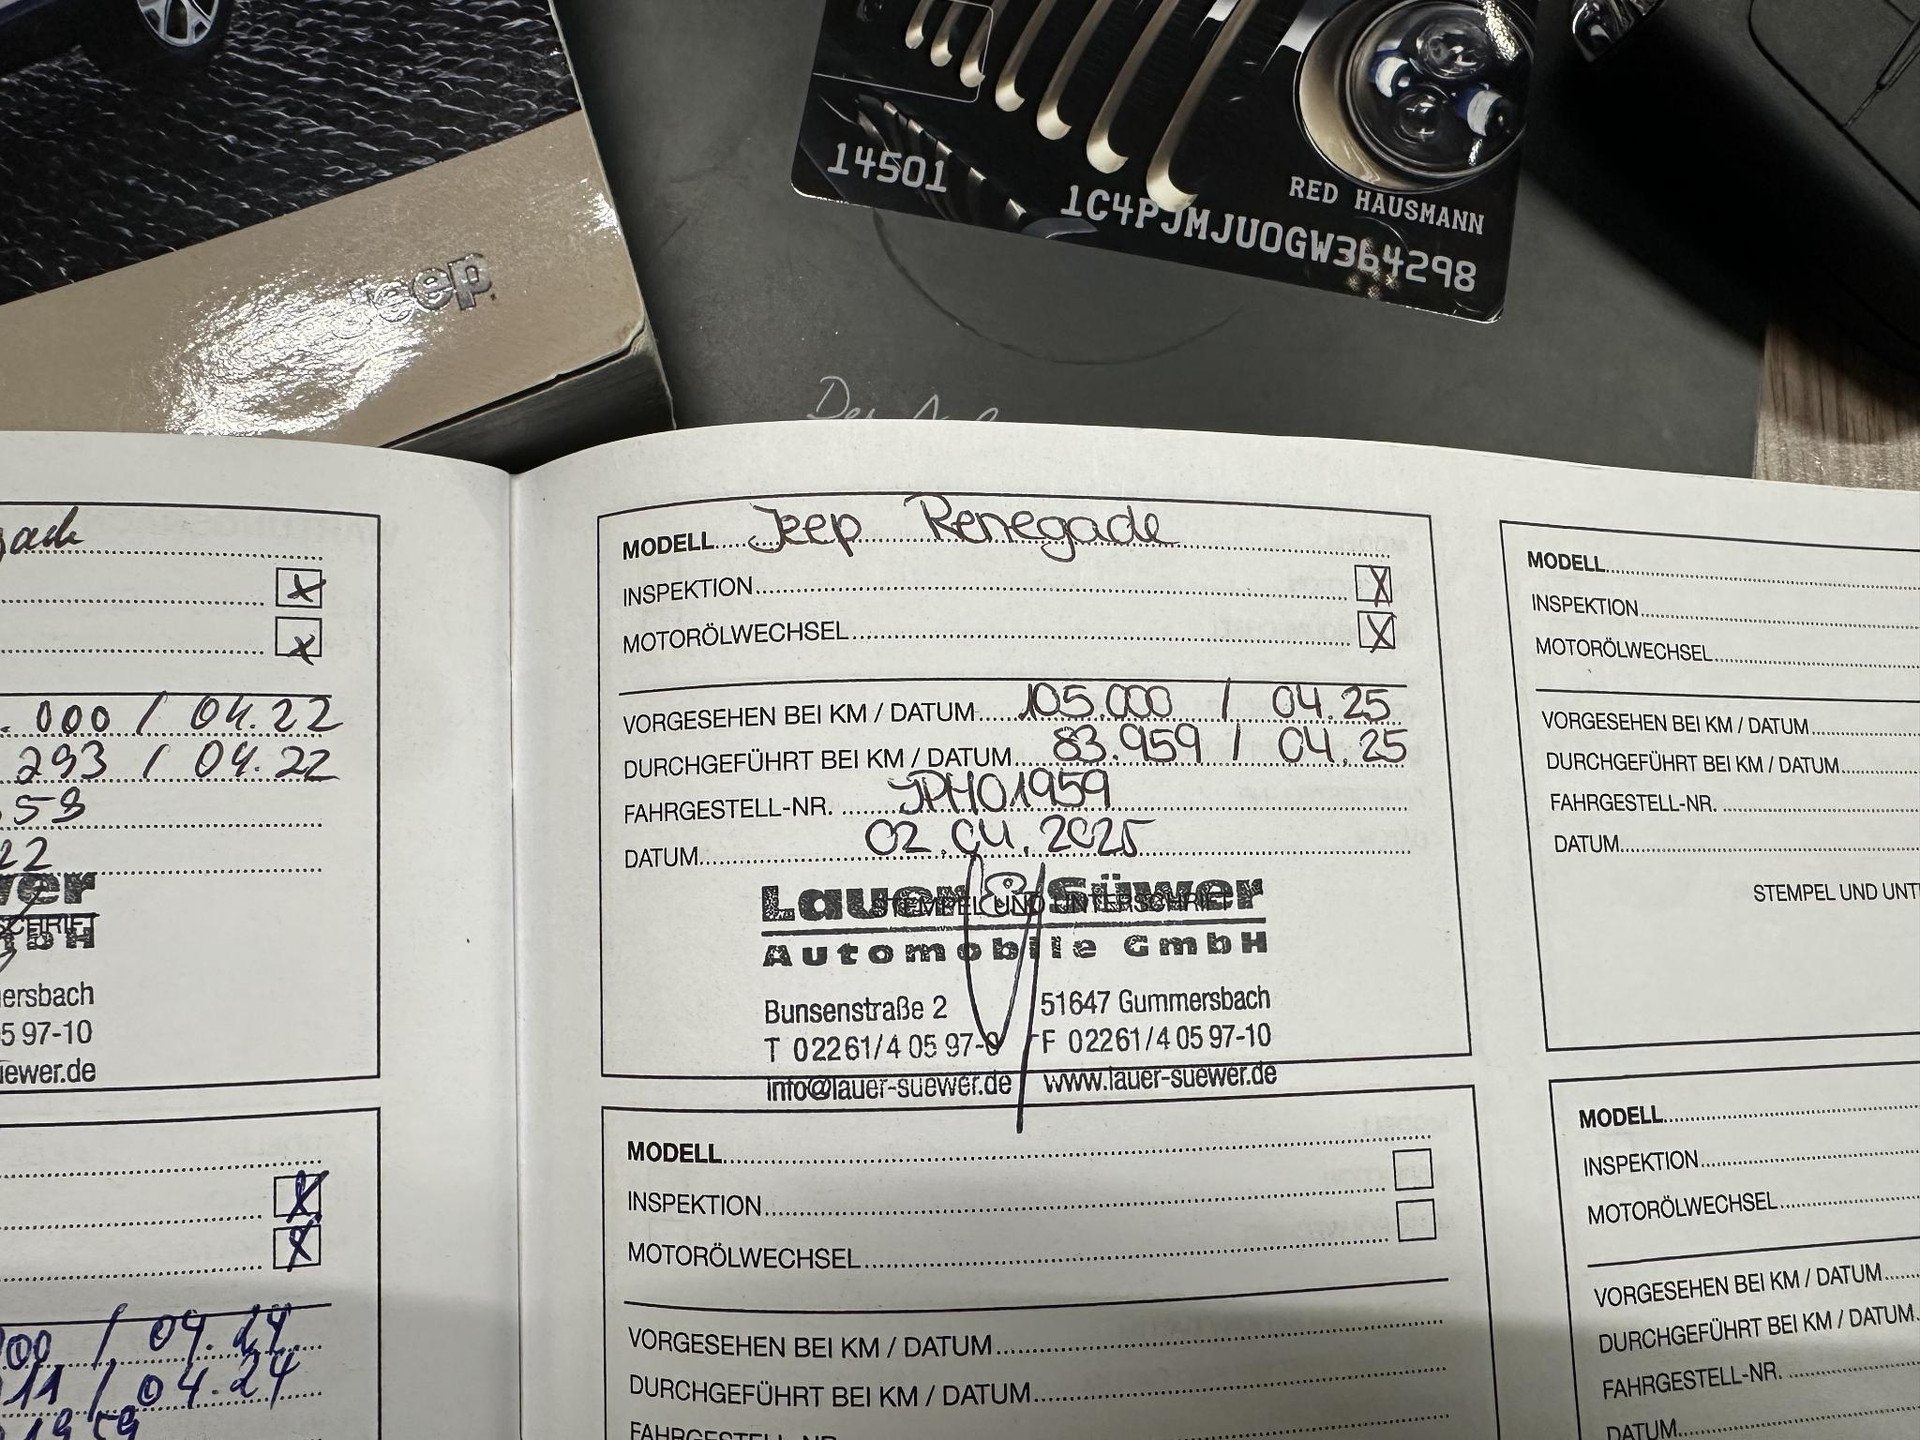 14501
RED HAUSMANN
1C4PJMJU0GW364298
Jeep
MODELL Jeep Renegade
INSPEKTION X
MOTORÖLWECHSEL X
VORGESEHEN BEI KM / DATUM 105.000 / 04.25
DURCHGEFÜHRT BEI KM / DATUM 83.959 / 04.25
FAHRGESTELL-NR. JPH01959
DATUM 02.04.2025
Lauer & Süwer
STEMPEL UND UNTERSCHRIFT
Automobile GmbH
Bunsenstraße 2 51647 Gummersbach
T 02261/4 05 97-0 F 02261/4 05 97-10
info@lauer-suewer.de www.lauer-suewer.de
MODELL
INSPEKTION
MOTORÖLWECHSEL
VORGESEHEN BEI KM / DATUM
DURCHGEFÜHRT BEI KM / DATUM
FAHRGESTELL-NR.
x
x
000 / 04.22
293 / 04.22
22
wer
GmbH
ersbach
5 97-10
uewer.de
X
X
00 / 04.24
11 / 04.24
1959
MODELL
INSPEKTION
MOTORÖLWECHSEL
VORGESEHEN BEI KM / DATUM
DURCHGEFÜHRT BEI KM / DATUM
FAHRGESTELL-NR.
DATUM
STEMPEL UND UNT
MODELL
INSPEKTION
MOTORÖLWECHSEL
VORGESEHEN BEI KM / DATUM
DURCHGEFÜHRT BEI KM / DATUM
FAHRGESTELL-NR.
DATUM